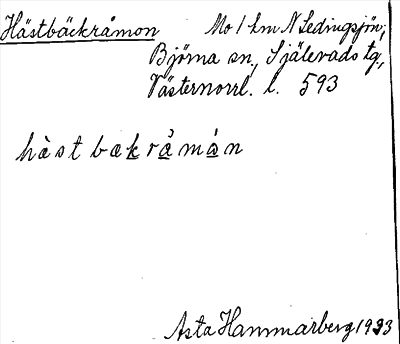 Hästbäckråmon Mo 1 km N Ledingsjön,
Björna sn, Själevads tg,
Västernorrl. l. 593
hàst bækråmån
Asta Hammarberg 1933